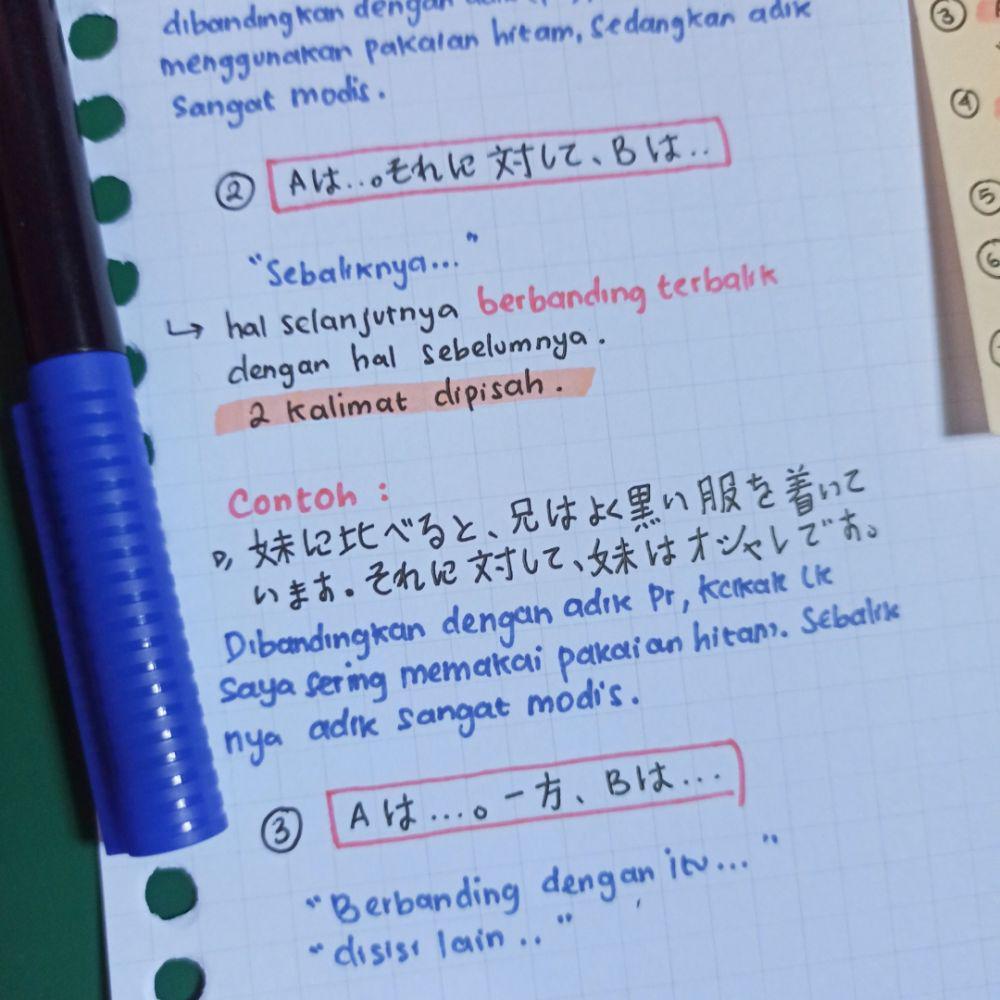 dibandingkan dengan
menggunakan pakaian hitam, sedangkan adik
sangat modis.
② Aは...。それに対して、Bは..
"Sebaliknya..."
↳ hal selanjutnya berbanding terbalik
dengan hal sebelumnya.
2 kalimat dipisah.
Contoh :
妹に比べると、兄はよく黒い服を着いて
います。それに対して、妹はオシャレです。
Dibandingkan dengan adik Pr, Kakak Lk
saya sering memakai pakaian hitam. Sebalik
nya adik sangat modis.
③ Aは...。一方、Bは...
"Berbanding dengan itu..."
"disisi lain .."
③
④
⑤
⑥